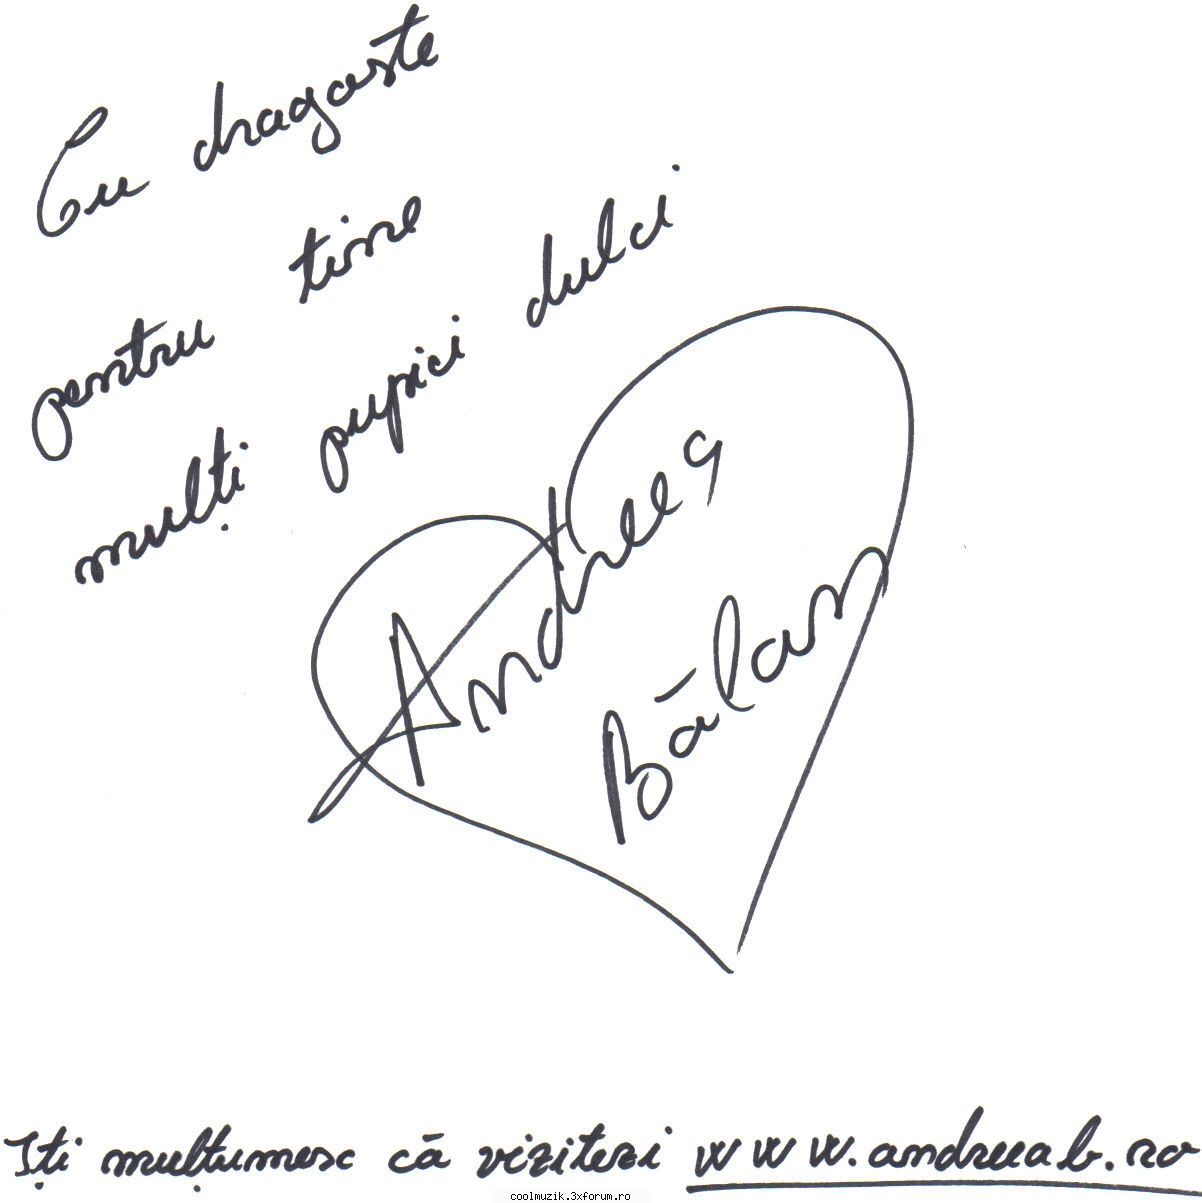 Cu dragoste
pentru tine
mulți pupici dulci
Andreea
Bălan
Iți mulțumesc că vizitezi www.andreeab.ro
coolmuzik.3xforum.ro